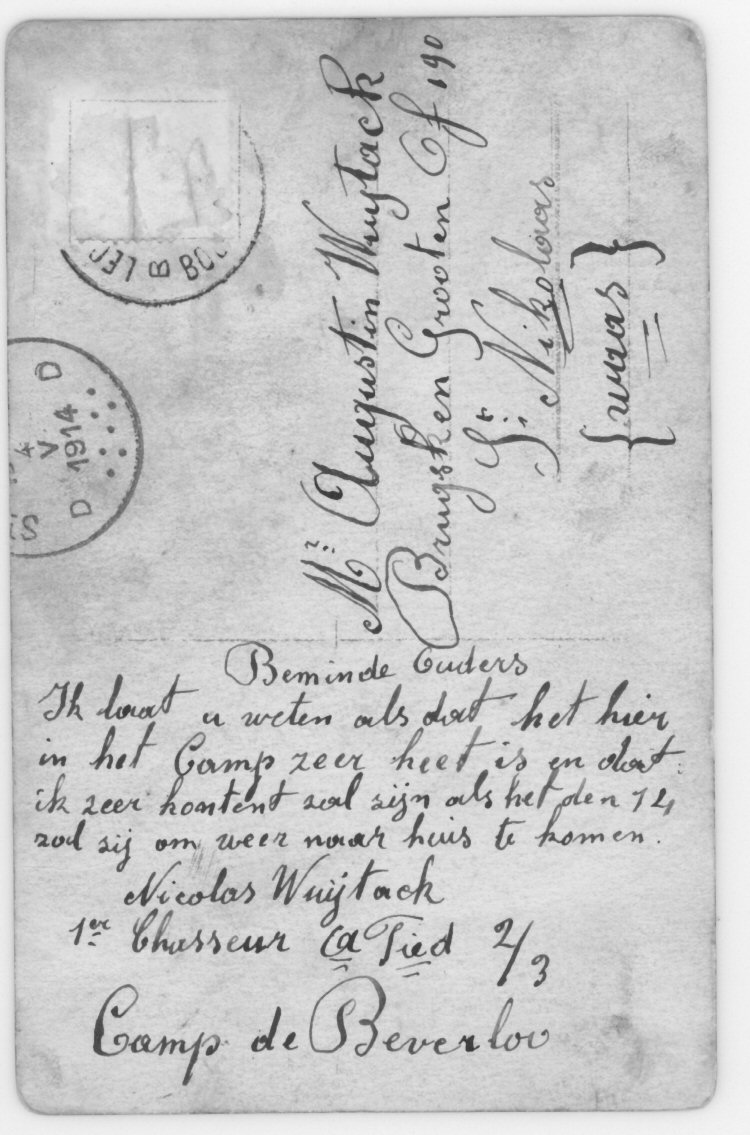 Mr. Augustin Wuytack
Brugsken Grooten Cf 190
St. Nikolaas
{waas}
LEO 8 BOU
4
V
1914
D
D
S
Beminde Ouders
Ik laat u weten als dat het hier
in het Camp zeer heet is en dat
ik zeer kontent zal zijn als het den 14
zal zij om weer naar huis te komen.
Nicolas Wuijtack
1er Chasseur Ca Pied 2/3
Camp de Beverloo